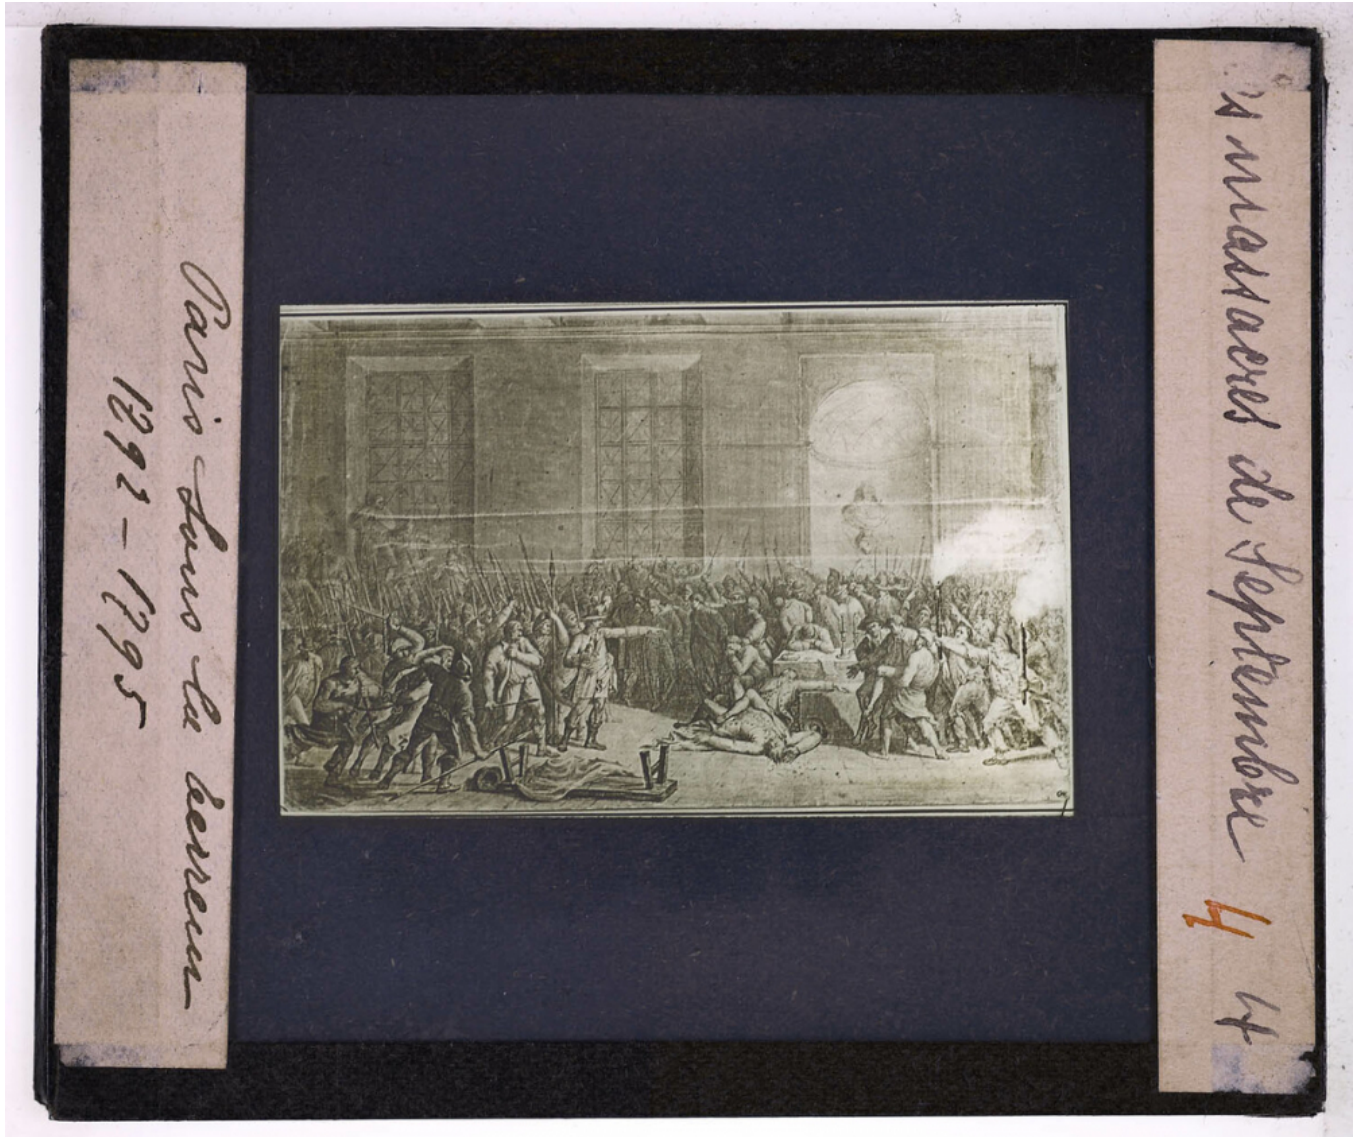 Paris sous la terreur
1792 - 1795
es massacres de Septembre 4 4